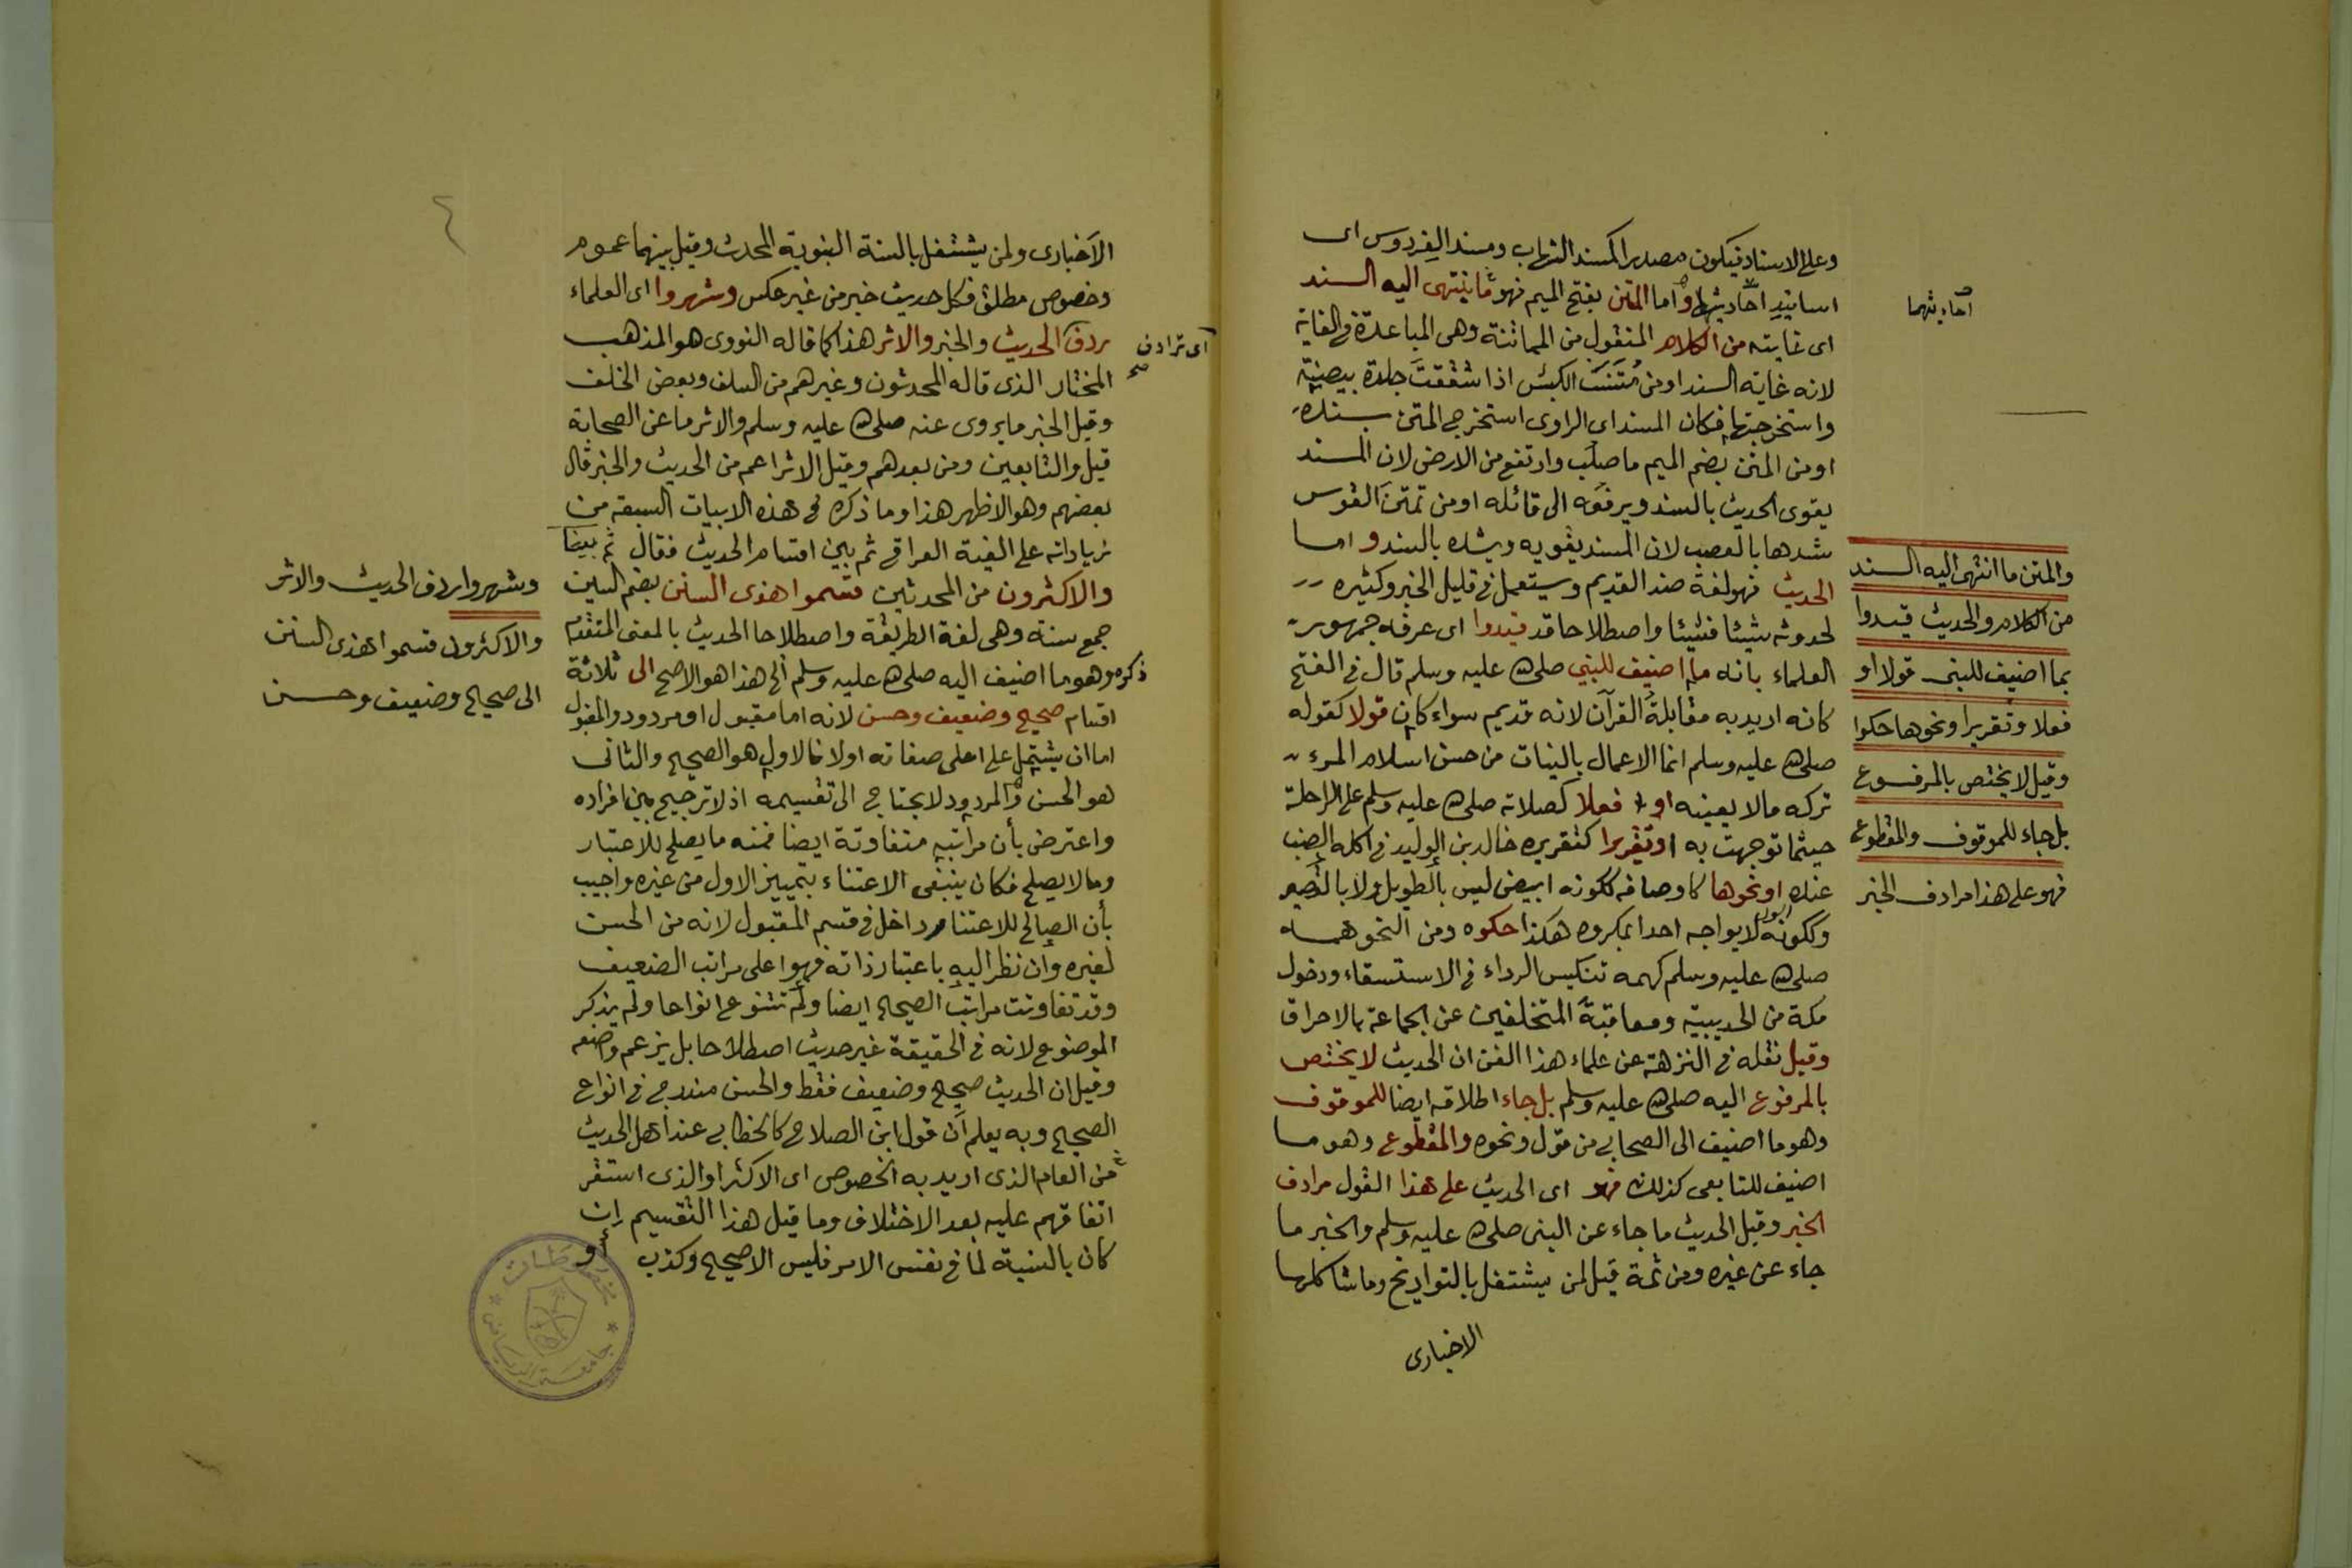 وعلى الاسناد فيكون مصدرا كمسند الشهاب ومسند الفردوس اى
اسانيد احاديثها واما المتن بفتح الميم فهو ما ينتهى اليه السند
اى غايته من الكلام المنقول من المماتنة وهى المباعدة فى الغاية
لانه غاية السند او من مَتَنتَ الكبش اذا شققتَ جلدة بيضته
واستخرجتها فكان المسند اى الراوى استخرج المتن بسنده
او من المتن بضم الميم ما صلب وارتفع من الارض لان المسند
يقوى الحديث بالسند ويرفعه الى قائله او من تمتن القوس
شدها بالعصب لان المسند يقويه ويشده بالسند واما
الحديث فهو لغة ضد القديم ويستعمل فى قليل الخبر وكثيره
لحدوثه شيئا فشيئا واصطلاحا قد قيدوا اى عرفه جمهور
العلماء بانه ما اضيف للنبي صلى الله عليه وسلم قال فى الفتح
كانه اريد به مقابلة القرآن لانه قديم سواء كان قولا كقوله
صلى الله عليه وسلم انما الاعمال بالنيات من حسن اسلام المرء
تركه مالا يعينه او فعلا كصلاته صلى الله عليه وسلم على الراحلة
حيثما توجهت به او تقريرا كتقريره خالد بن الوليد فى اكله الضب
عنده او نحوها كاوصافه ككونه ابيض ليس بالطويل ولا بالقصير
وككونه لا يواجه احدا بمكروه هكذا حكوه ومن النحو همه
صلى الله عليه وسلم كهمه تنكيس الرداء فى الاستسقاء ودخول
مكة من الحديبية ومعاقبة المتخلفين عن الجماعة بالاحراق
وقيل نقله فى النزهة عن علماء هذا الفن ان الحديث لا يختص
بالمرفوع اليه صلى الله عليه وسلم بل جاء اطلاقه ايضا للموقوف
وهو ما اضيف الى الصحابي من قول ونحوه والمقطوع وهو ما
اضيف للتابعى كذلك فهو اى الحديث على هذا القول مرادف
الخبر وقيل الحديث ما جاء عن النبى صلى الله عليه وسلم والخبر ما
جاء عن غيره ومن ثمة قيل لمن يشتغل بالتواريخ وما شاكلها
الاخبارى
احاديثهما
والمتن ما انتهى اليه السند
من الكلام والحديث قيدوا
بما اضيف للنبى قولا او
فعلا وتقريرا ونحوها حكوا
وقيل لا يختص بالمرفوع
بل جاء للموقوف والمقطوع
فهو على هذا مرادف الخبر
٤
الاخبارى ولمن يشتغل بالسنة النبوية المحدث وقيل بينهما عموم
وخصوص مطلق فكل حديث خبر من غير عكس وشهروا اى العلماء
ردف الحديث والخبر والاثر هذا كما قاله النووى هو المذهب
المختار الذى قاله المحدثون وغيرهم من السلف وبعض الخلف
وقيل الخبر ما يروى عنه صلى الله عليه وسلم والاثر ما عن الصحابة
قيل والتابعين ومن بعدهم وقيل الاثر اعم من الحديث والخبر قال
بعضهم وهو الاظهر هذا وما ذكره فى هذه الابيات السبعة من
زياداته على الفية العراقى ثم بين اقسام الحديث فقال
والاكثرون من المحدثين قسموا هذى السنن بضم السين
جمع سنة وهى لغة الطريقة واصطلاحا الحديث بالمعنى المتقدم
ذكره وهو ما اضيف اليه صلى الله عليه وسلم الخ هذا هو الاصح الى ثلاثة
اقسام صحيح وضعيف وحسن لانه اما مقبول او مردود والمقبول
اما ان يشتمل على اعلى صفاته اولا فالاول هو الصحيح والثانى
هو الحسن والمردود لا يحتاج الى تقسيمه اذ لا ترجيح بين افراده
واعترض بأن مراتبه متفاوتة ايضا فمنه ما يصلح للاعتبار
وما لا يصلح فكان ينبغى الاعتناء بتمييز الاول من غيره واجيب
بأن الصالح للاعتناء داخل فى قسم المقبول لانه من الحسن
لغيره وان نظر اليه باعتبار ذاته فهو اعلى مراتب الضعيف
وقد تفاوتت مراتب الصحيح ايضا ولم تتنوع انواعا ولم يذكر
الموضوع لانه فى الحقيقة غير حديث اصطلاحا بل يزعم واضعه
وقيل ان الحديث صحيح وضعيف فقط والحسن مندرج فى انواع
الصحيح وبه يعلم ان قول ابن الصلاح كالخطابي عند اهل الحديث
من العام الذى اريد به الخصوص اى الاكثر او الذى استقر
اتفاقهم عليه بعد الاختلاف وما قيل هذا التقسيم ان
كان بالنسبة لما فى نفس الامر فليس الا صحيح وكذب او
اى ترادف
صح
وشهروا ردف الحديث والاثر
والاكثرون قسموا هذى السنن
الى صحيح وضعيف وحسن
مخطوطات
جامعة الرياض